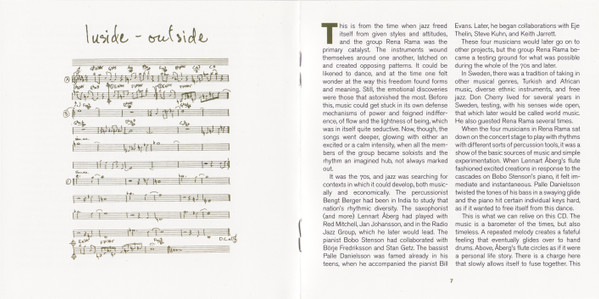 Inside - outside
This is from the time when jazz freed
itself from given styles and attitudes,
and the group Rena Rama was the
primary catalyst. The instruments wound
themselves around one another, latched on
and created opposing patterns. It could be
likened to dance, and at the time one felt
wonder at the way this freedom found forms
and meaning. Still, the emotional discoveries
were those that astonished the most. Before
this, music could get stuck in its own defense
mechanisms of power and feigned indiffer-
ence, of flow and the lightness of being, which
was in itself quite seductive. Now, though, the
songs went deeper, glowing with either an
excited or a calm intensity, when all the mem-
bers of the group became soloists and the
rhythm an imagined hub, not always marked
out.
It was the '70s, and jazz was searching for
contexts in which it could develop, both music-
ally and economically. The percussionist
Bengt Berger had been in India to study that
nation's rhythmic diversity. The saxophonist
(and more) Lennart Åberg had played with
Red Mitchell, Jan Johansson, and in the Radio
Jazz Group, which he later would lead. The
pianist Bobo Stenson had collaborated with
Börje Fredriksson and Stan Getz. The bassist
Palle Danielsson was famed already in his
teens, when he accompanied the pianist Bill
Evans. Later, he began collaborations with Eje
Thelin, Steve Kuhn, and Keith Jarrett.
These four musicians would later go on to
other projects, but the group Rena Rama be-
came a testing ground for what was possible
during the whole of the '70s and later.
In Sweden, there was a tradition of taking in
other musical genres, Turkish and African
music, diverse ethnic instruments, and free
jazz. Don Cherry lived for several years in
Sweden, testing, with his senses wide open,
that which later would be called world music.
He also guested Rena Rama several times.
When the four musicians in Rena Rama sat
down on the concert stage to play with rhythms
with different sorts of percussion tools, it was a
show of the basic sources of music and simple
experimentation. When Lennart Åberg's flute
fashioned excited creations in response to the
cascades on Bobo Stenson's piano, it felt im-
mediate and instantaneous. Palle Danielsson
twisted the tones of his bass in a swaying glide
and the piano hit certain individual keys hard,
as if it wanted to free itself from this dance.
This is what we can relive on this CD. The
music is a barometer of the times, but also
timeless. A repeated melody creates a fateful
feeling that eventually glides over to hand
drums. Above, Åberg's flute circles as if it were
a personal life story. There is a charge here
that slowly allows itself to fuse together. This
7